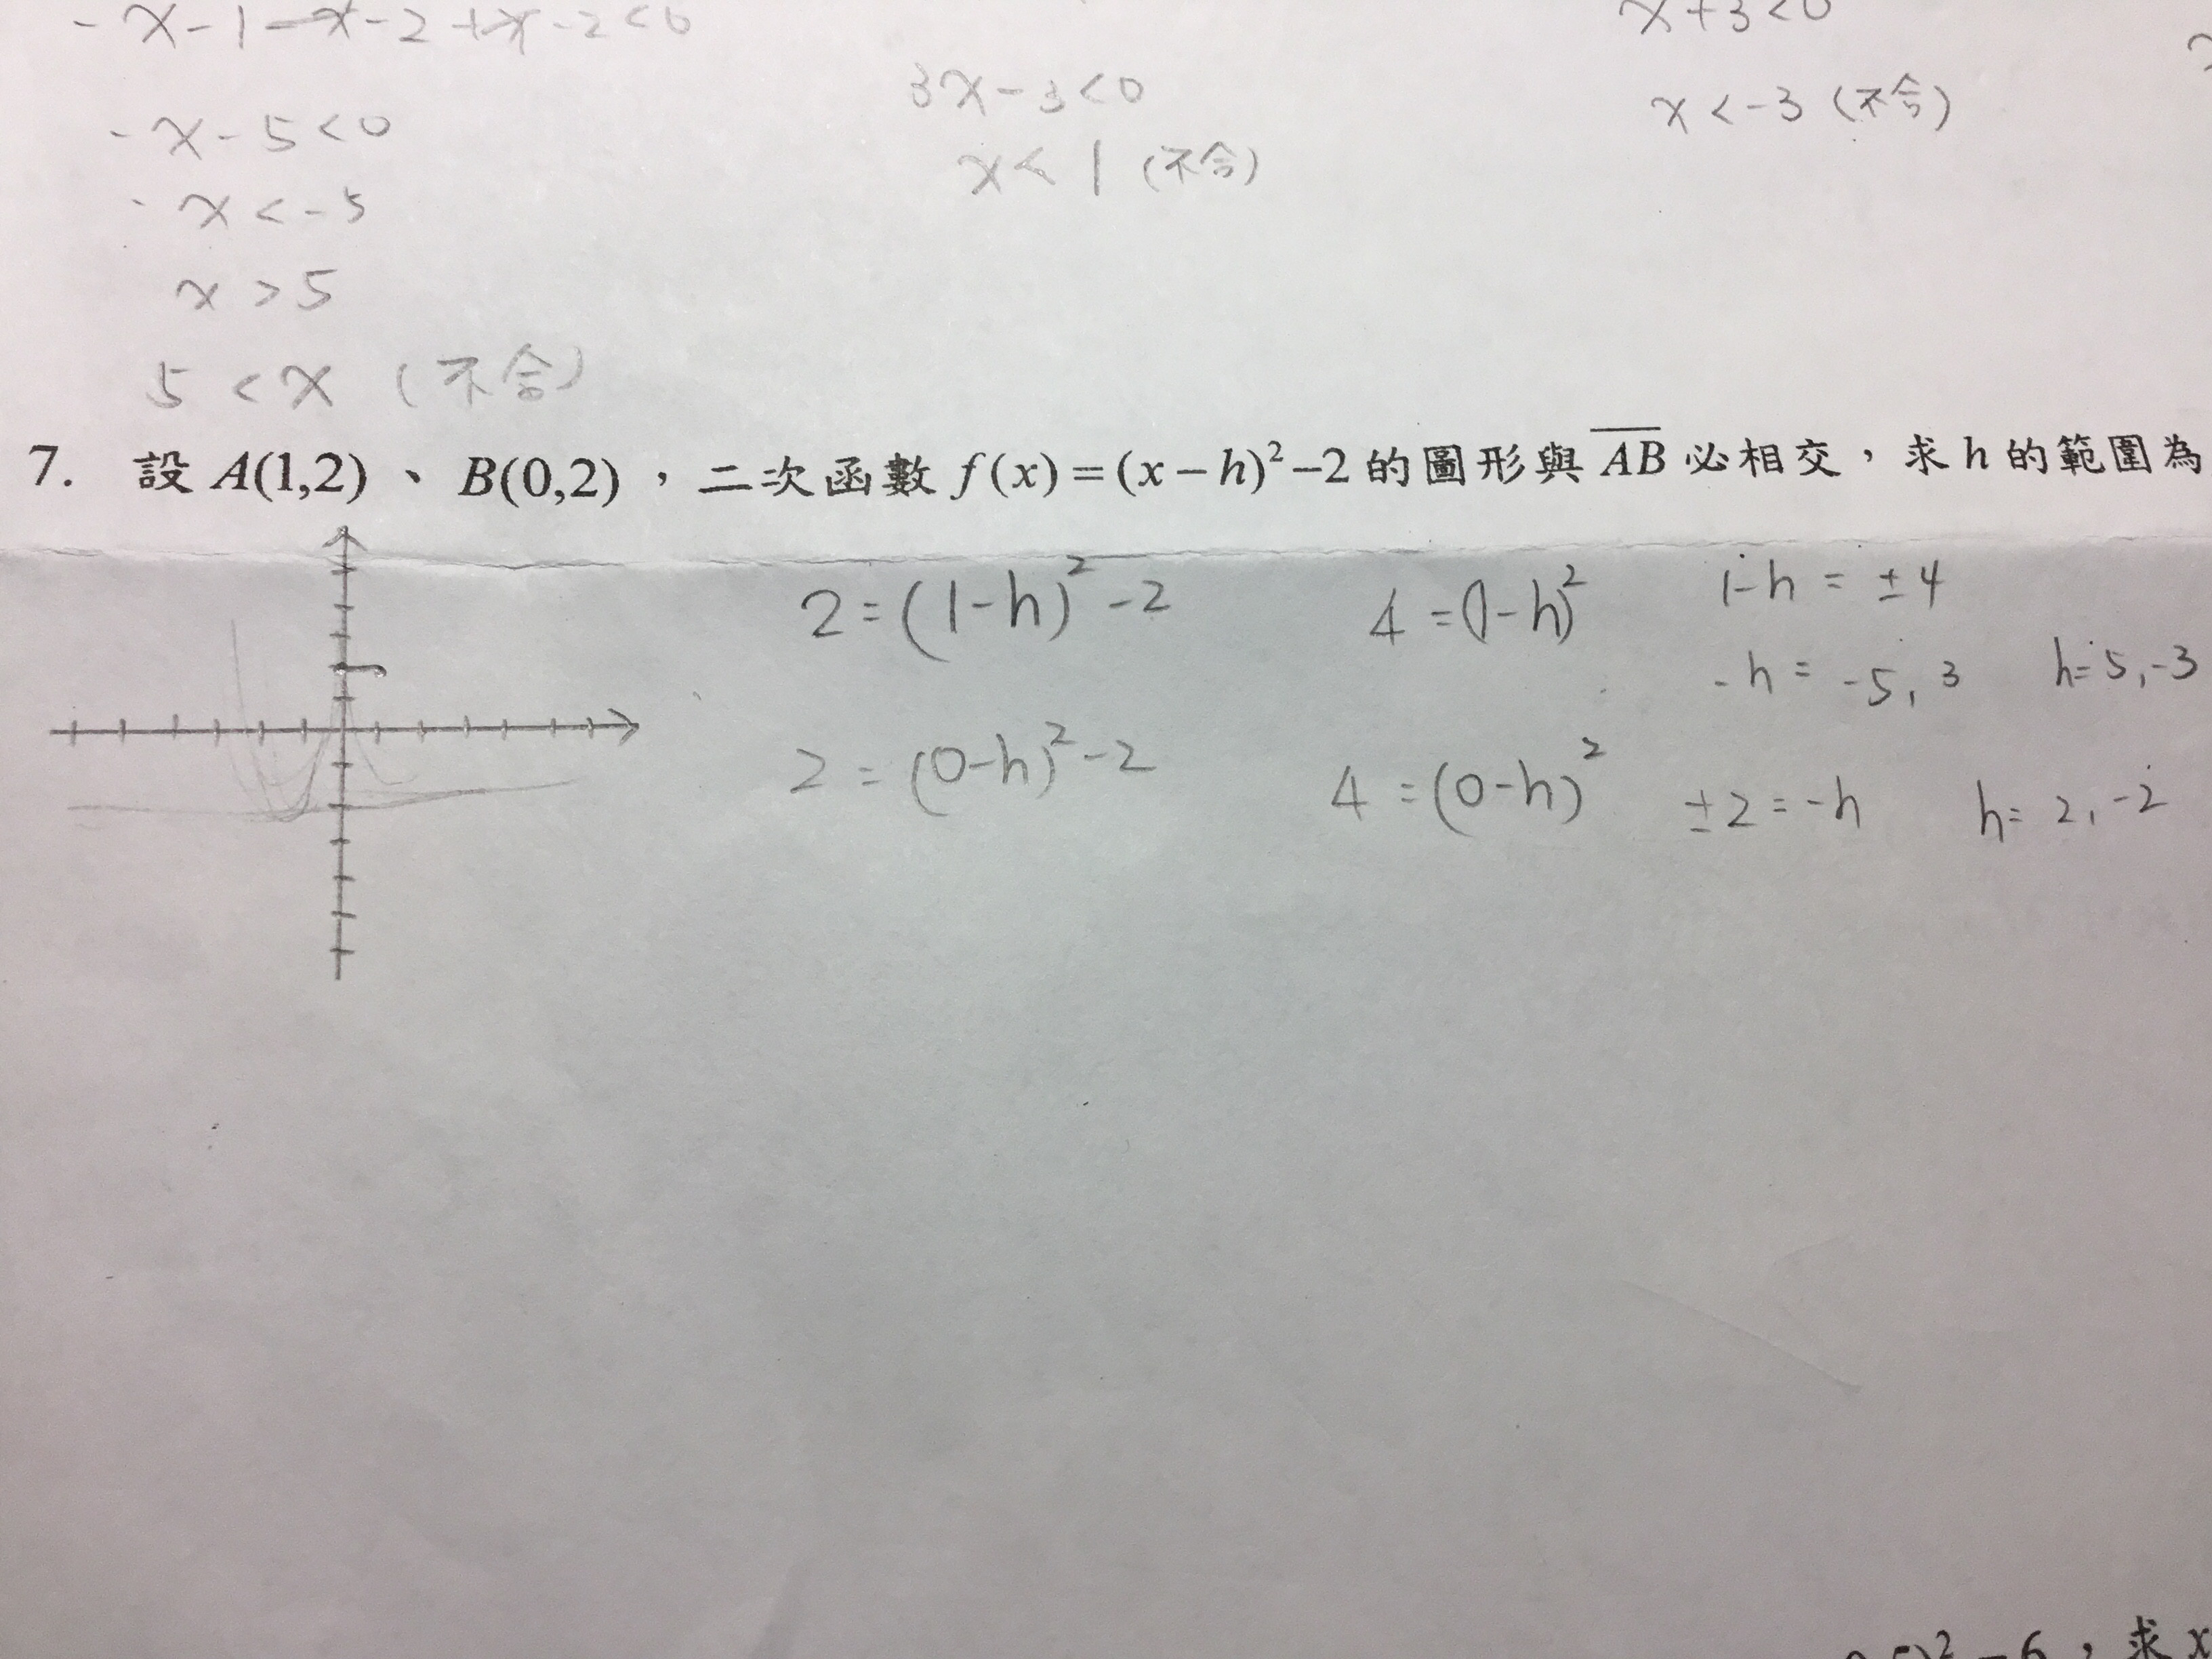 -x-1-x-2+x-2<0
x+3<0
3x-3<0
x<-3 (不合)
-x-5<0
x<1 (不合)
-x<-5
x>5
5<x (不合)
7. 設 A(1,2)、B(0,2)，二次函數 f(x)=(x-h)²-2 的圖形與 AB 必相交，求 h 的範圍為
2=(1-h)²-2 4=(1-h)² 1-h=±4
-h=-5,3 h=5,-3
2=(0-h)²-2 4=(0-h)² ±2=-h h=2,-2
)²-6，求 x